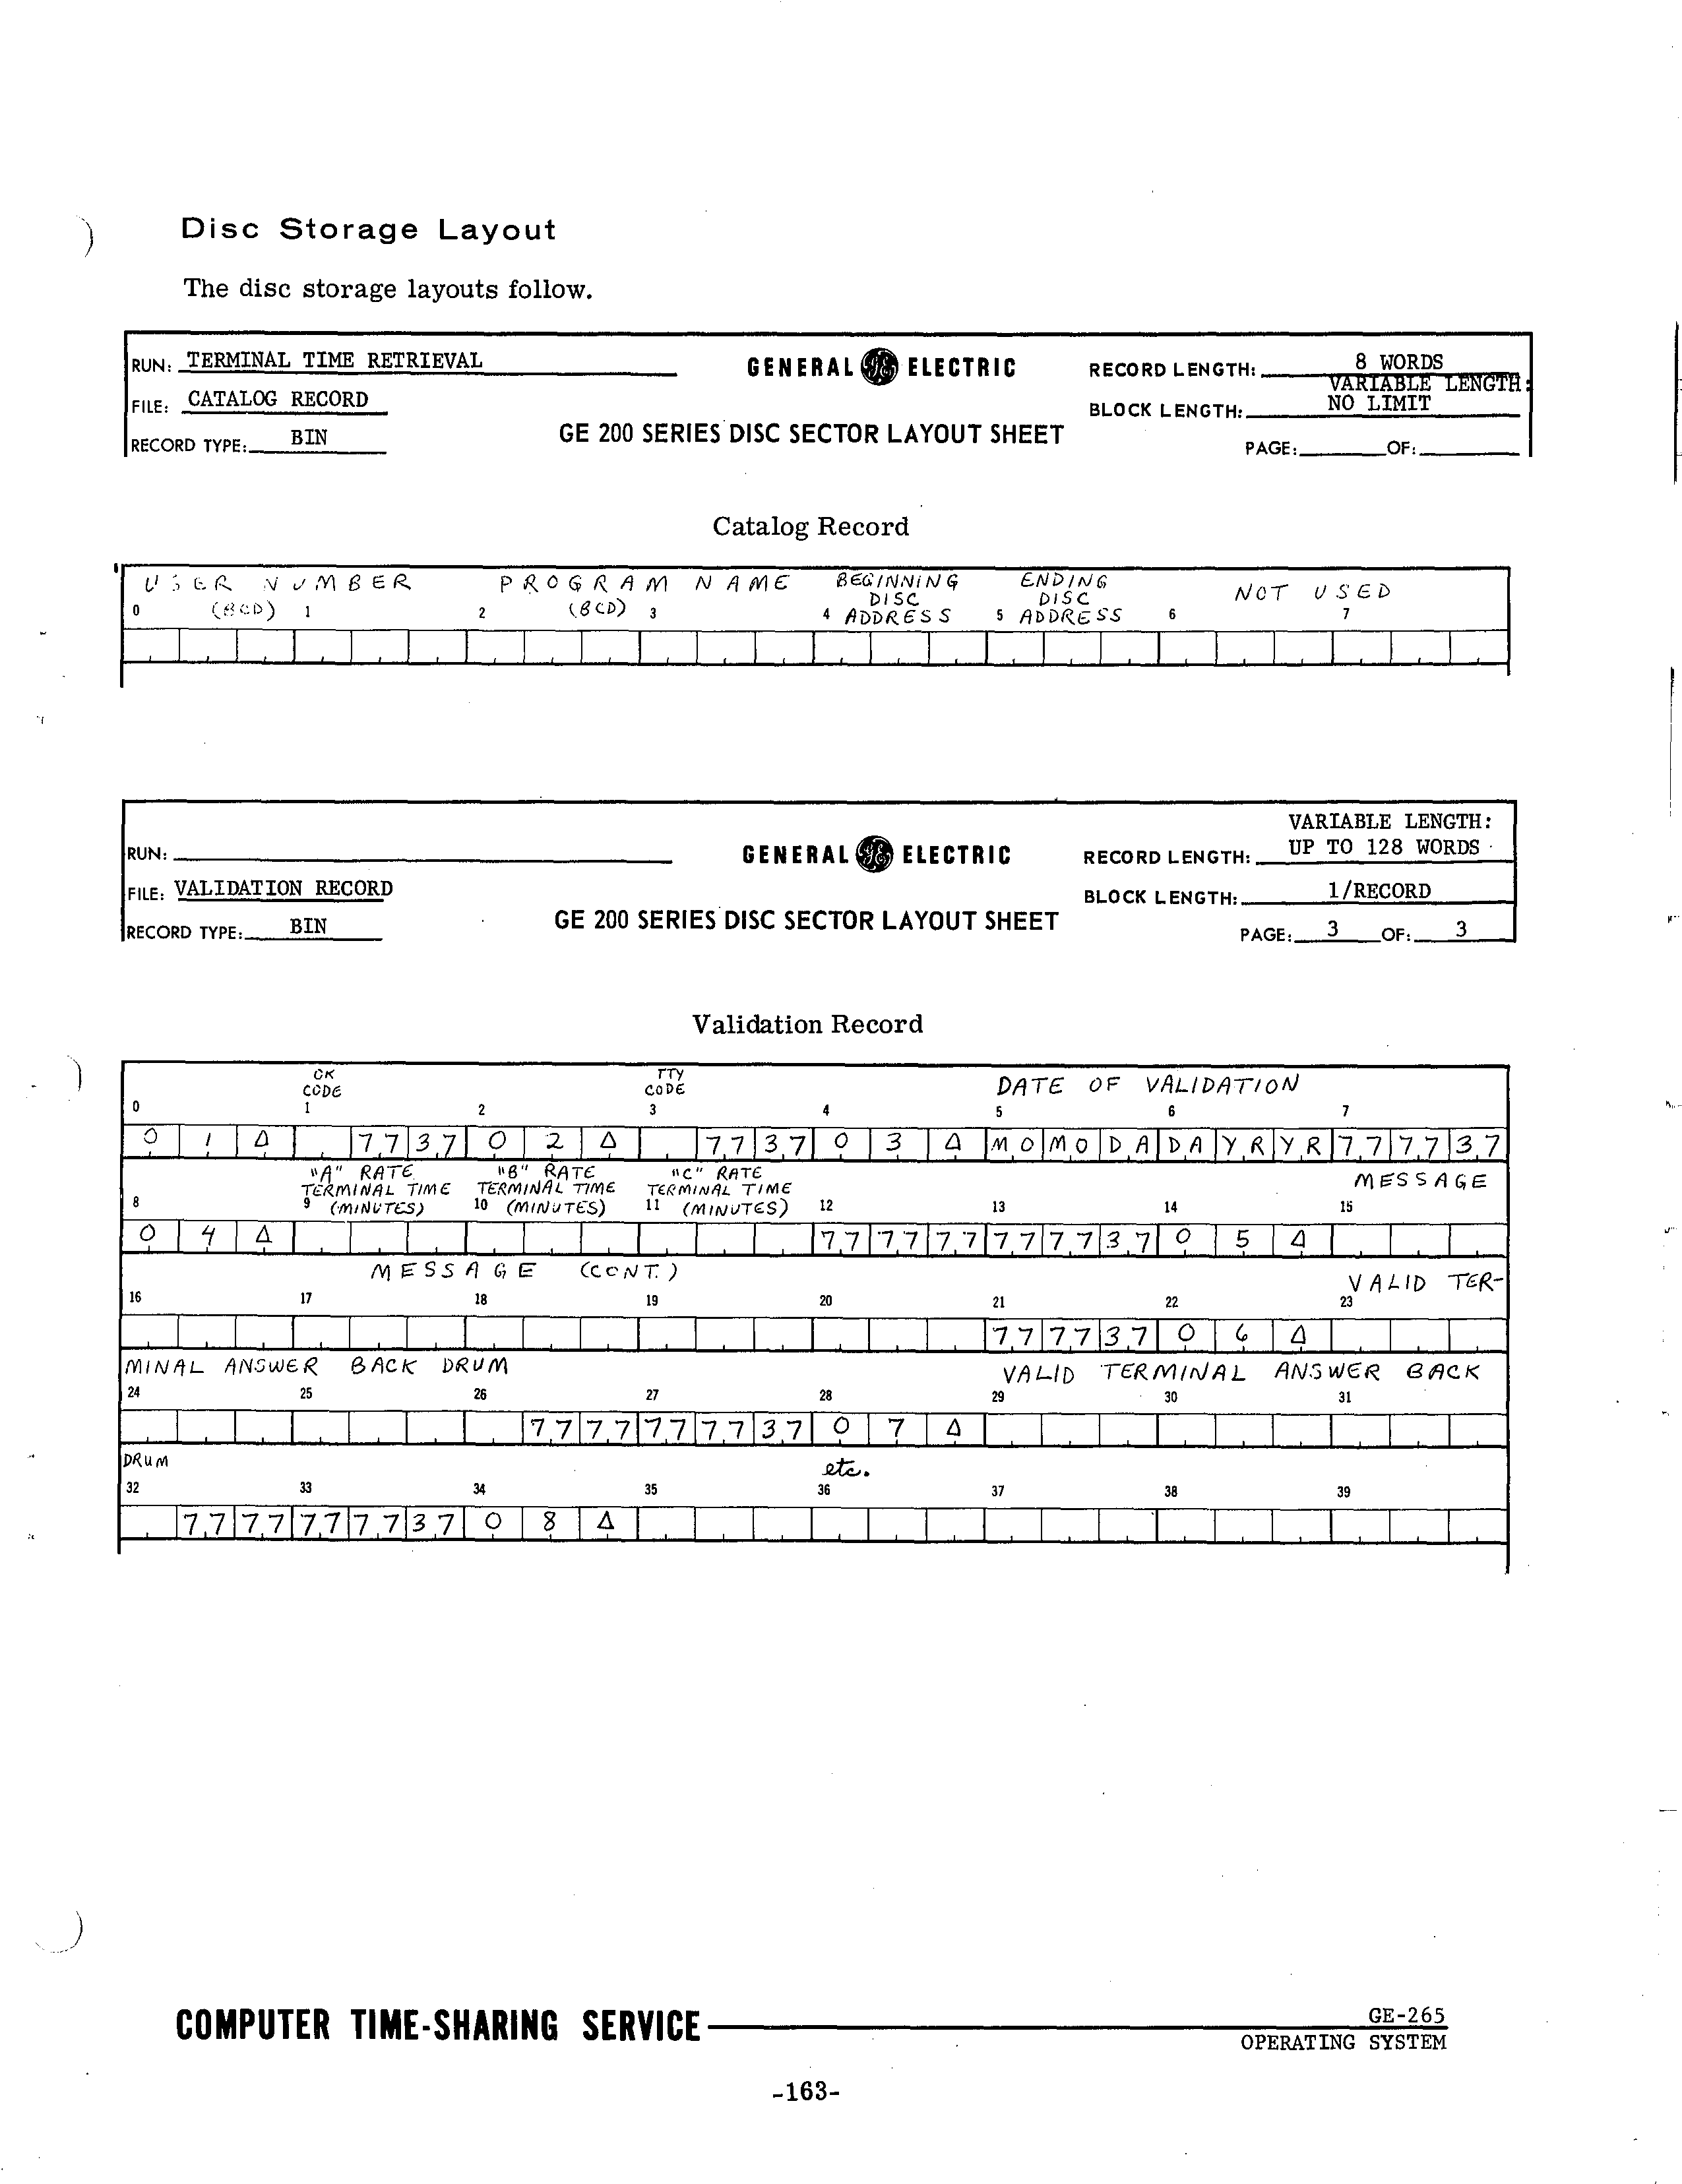 Disc Storage Layout
The disc storage layouts follow.
RUN: TERMINAL TIME RETRIEVAL
FILE: CATALOG RECORD
RECORD TYPE: BIN
GENERAL GE ELECTRIC
GE 200 SERIES DISC SECTOR LAYOUT SHEET
RECORD LENGTH: 8 WORDS
VARIABLE LENGTH:
BLOCK LENGTH: NO LIMIT
PAGE: OF:
Catalog Record
USER NUMBER PROGRAM NAME BEGINNING ENDING NOT USED
DISC DISC
0 (BCD) 1 2 (BCD) 3 4 ADDRESS 5 ADDRESS 6 7
RUN:
FILE: VALIDATION RECORD
RECORD TYPE: BIN
GENERAL GE ELECTRIC
GE 200 SERIES DISC SECTOR LAYOUT SHEET
VARIABLE LENGTH:
RECORD LENGTH: UP TO 128 WORDS
BLOCK LENGTH: 1/RECORD
PAGE: 3 OF: 3
Validation Record
OK TTY
CODE CODE DATE OF VALIDATION
0 1 2 3 4 5 6 7
0 1 Δ 7 7 3 7 0 2 Δ 7 7 3 7 0 3 Δ M O M O D A D A Y R Y R 7 7 7 7 3 7
"A" RATE "B" RATE "C" RATE MESSAGE
TERMINAL TIME TERMINAL TIME TERMINAL TIME
8 9 (MINUTES) 10 (MINUTES) 11 (MINUTES) 12 13 14 15
0 4 Δ 7 7 7 7 7 7 7 7 7 7 3 7 0 5 Δ
MESSAGE (CONT.) VALID TER-
16 17 18 19 20 21 22 23
7 7 7 7 3 7 0 6 Δ
MINAL ANSWER BACK DRUM VALID TERMINAL ANSWER BACK
24 25 26 27 28 29 30 31
7 7 7 7 7 7 7 7 3 7 0 7 Δ
DRUM etc.
32 33 34 35 36 37 38 39
7 7 7 7 7 7 7 7 3 7 0 8 Δ
COMPUTER TIME-SHARING SERVICE
GE-265
OPERATING SYSTEM
-163-